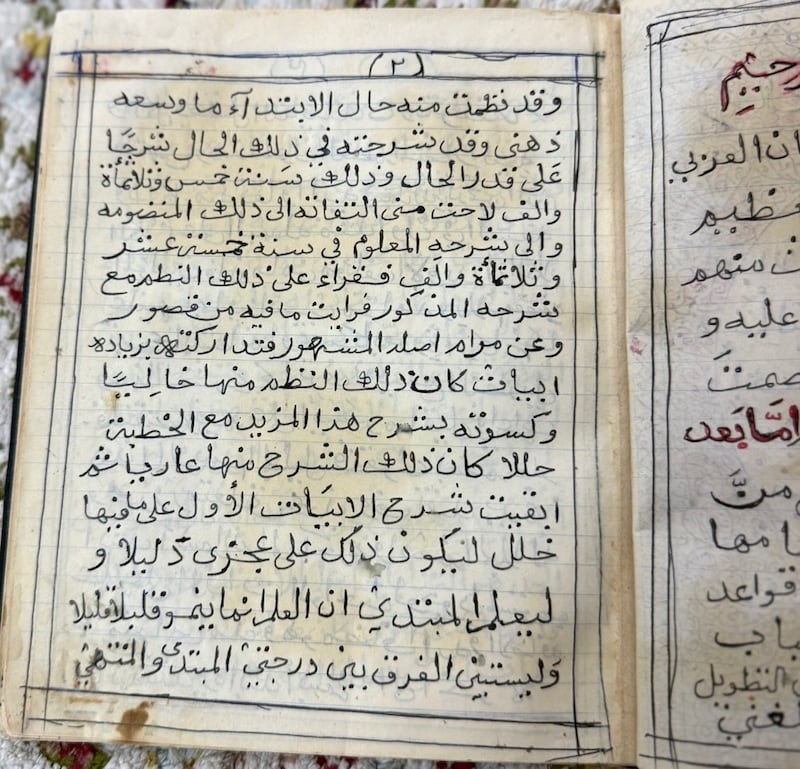 (٢)
وقد نظمت منه حال الابتدآء ما وسعه
ذهنى وقد شرحته في ذلك الحال شرحًا
عَلى قدر الحال وذلك سَنة خمس وثلاثمأة
والف لاحت منى التفاتة الى ذلك المنضومه
والى شرحهِ المعلوم في سنة خمسة عشر
وثلاثمأة والف فقراء على ذلك النظم مع
شرحه المذكور فرايت ما فيه من قصور
وعن مرام اصله المشهور فتداركته بزياده
ابيات كان ذلك النظم منها خاليًا
وكسوته بشرح هذا المزيد مع الخطبة
حللا كان ذلك الشرح منها عاريا ثم
ابقيت شرح الابيَات الأول على ما فيها
خلل ليكون ذلك على عجزى دليلا و
ليعلم المبتدي ان العلم انما ينمو قليلا قليلا
وَليستبين الفرق بين درجتي المبتدئ والمنتهي
رحيم
ان العربي
عظيم
منهم
عليه و
صمتَ
امَّا بَعد
منَّ
امها
قواعد
باب
التطويل